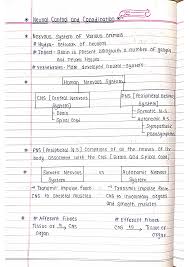 * Neural Control and Coordination *
* Nervous System of Various Animals
* Hydra - Network of neurons
* Insect - Brain is present alongwith a number of ganglia and Neural tissues
* Vertebrates - More developed Neural System
Human Nervous System
CNS [Central Nervous System]
PNS [Peripheral Nervous System]
→ Brain
→ Spinal Cord
→ Somatic N.S
→ Autonomic N.S
→ Sympathetic
→ Parasympathetic
* PNS [Peripheral N.S] Comprises of all the nerves of the body associated with the CNS (Brain and Spinal Cord)
Somatic Nervous System
vs
Autonomic Nervous System
→ Transmit impulse from CNS to skeletal muscles
→ Transmits impulse from CNS to involuntary organs and smooth muscles
* Afferent Fibres
* Efferent Fibres
Tissue or organ to CNS
CNS to Tissue or organ